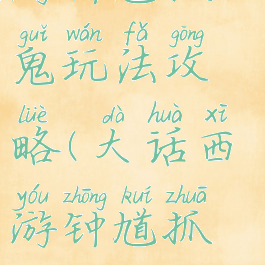 guǐ wán fǎ gōng
鬼玩法攻
lüè dà huà xī
略(大话西
yóu zhōng kuí zhuā
游钟馗抓